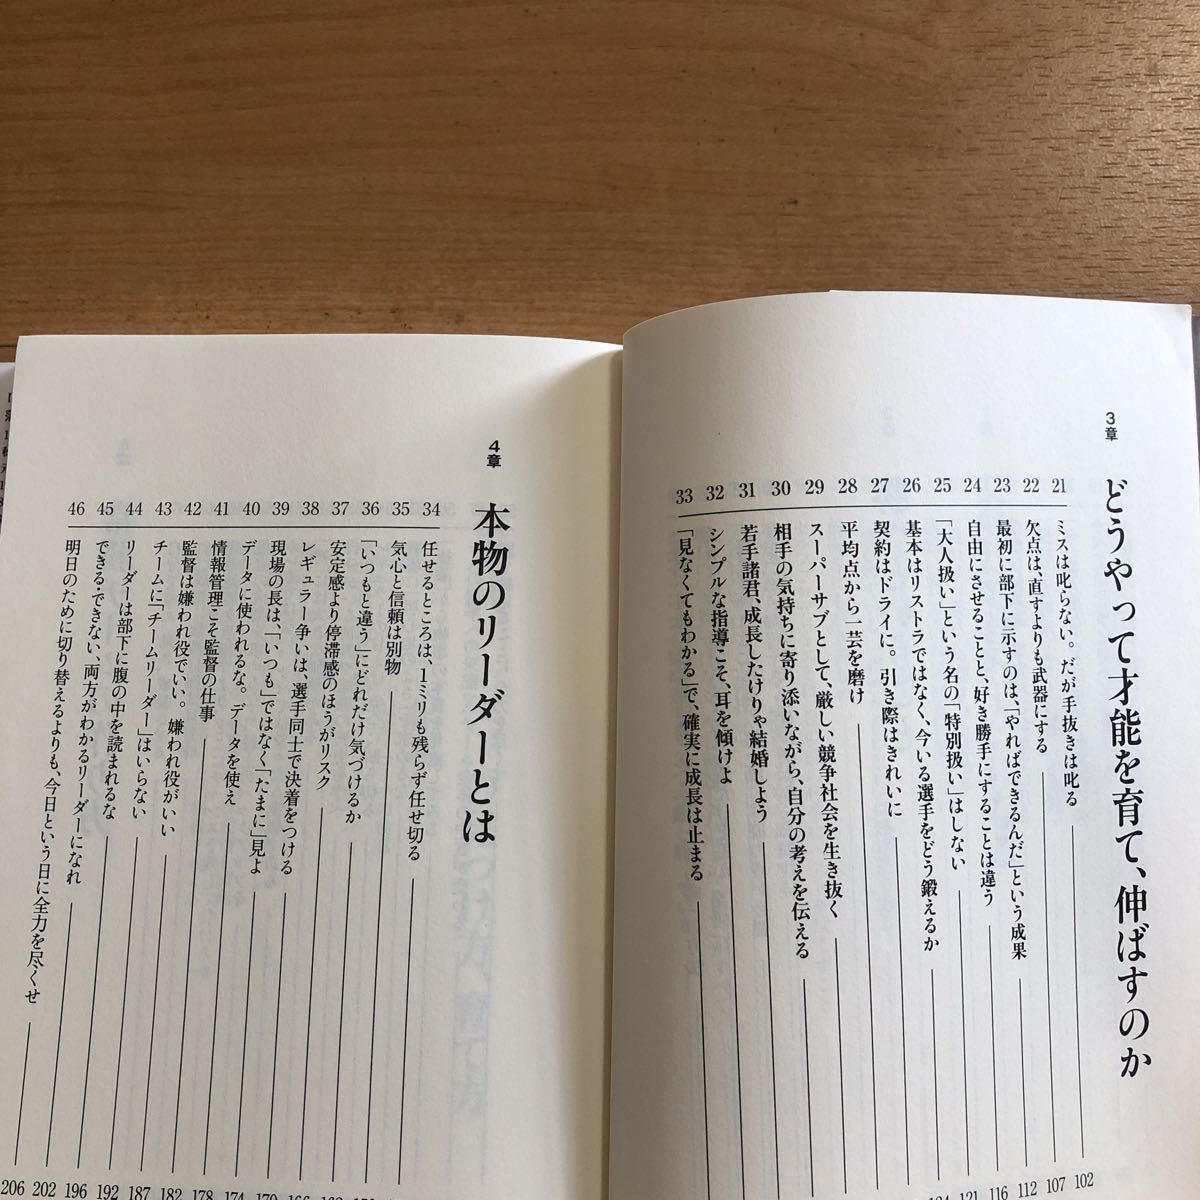 3章 どうやって才能を育て、伸ばすのか
21 ミスは叱らない。だが手抜きは叱る 102
22 欠点は、直すよりも武器にする 107
23 最初に部下に示すのは、「やればできるんだ」という成果 112
24 自由にさせることと、好き勝手にすることは違う 116
25 「大人扱い」という名の「特別扱い」はしない 121
26 基本はリストラではなく、今いる選手をどう鍛えるか
27 契約はドライに。引き際はきれいに
28 平均点から一芸を磨け
29 スーパーサブとして、厳しい競争社会を生き抜く
30 相手の気持ちに寄り添いながら、自分の考えを伝える
31 若手諸君、成長したけりゃ結婚しよう
32 シンプルな指導こそ、耳を傾けよ
33 「見なくてもわかる」で、確実に成長は止まる
4章 本物のリーダーとは
34 任せるところは、1ミリも残らず任せ切る
35 気心と信頼は別物
36 「いつもと違う」にどれだけ気づけるか
37 安定感より停滞感のほうがリスク 166
38 レギュラー争いは、選手同士で決着をつける 170
39 現場の長は、「いつも」ではなく「たまに」見よ 174
40 データに使われるな。データを使え 178
41 情報管理こそ監督の仕事 182
42 監督は嫌われ役でいい。嫌われ役がいい 187
43 チームに「チームリーダー」はいらない 192
44 リーダーは部下に腹の中を読まれるな 196
45 できるできない、両方がわかるリーダーになれ 202
46 明日のために切り替えるよりも、今日という日に全力を尽くせ 206